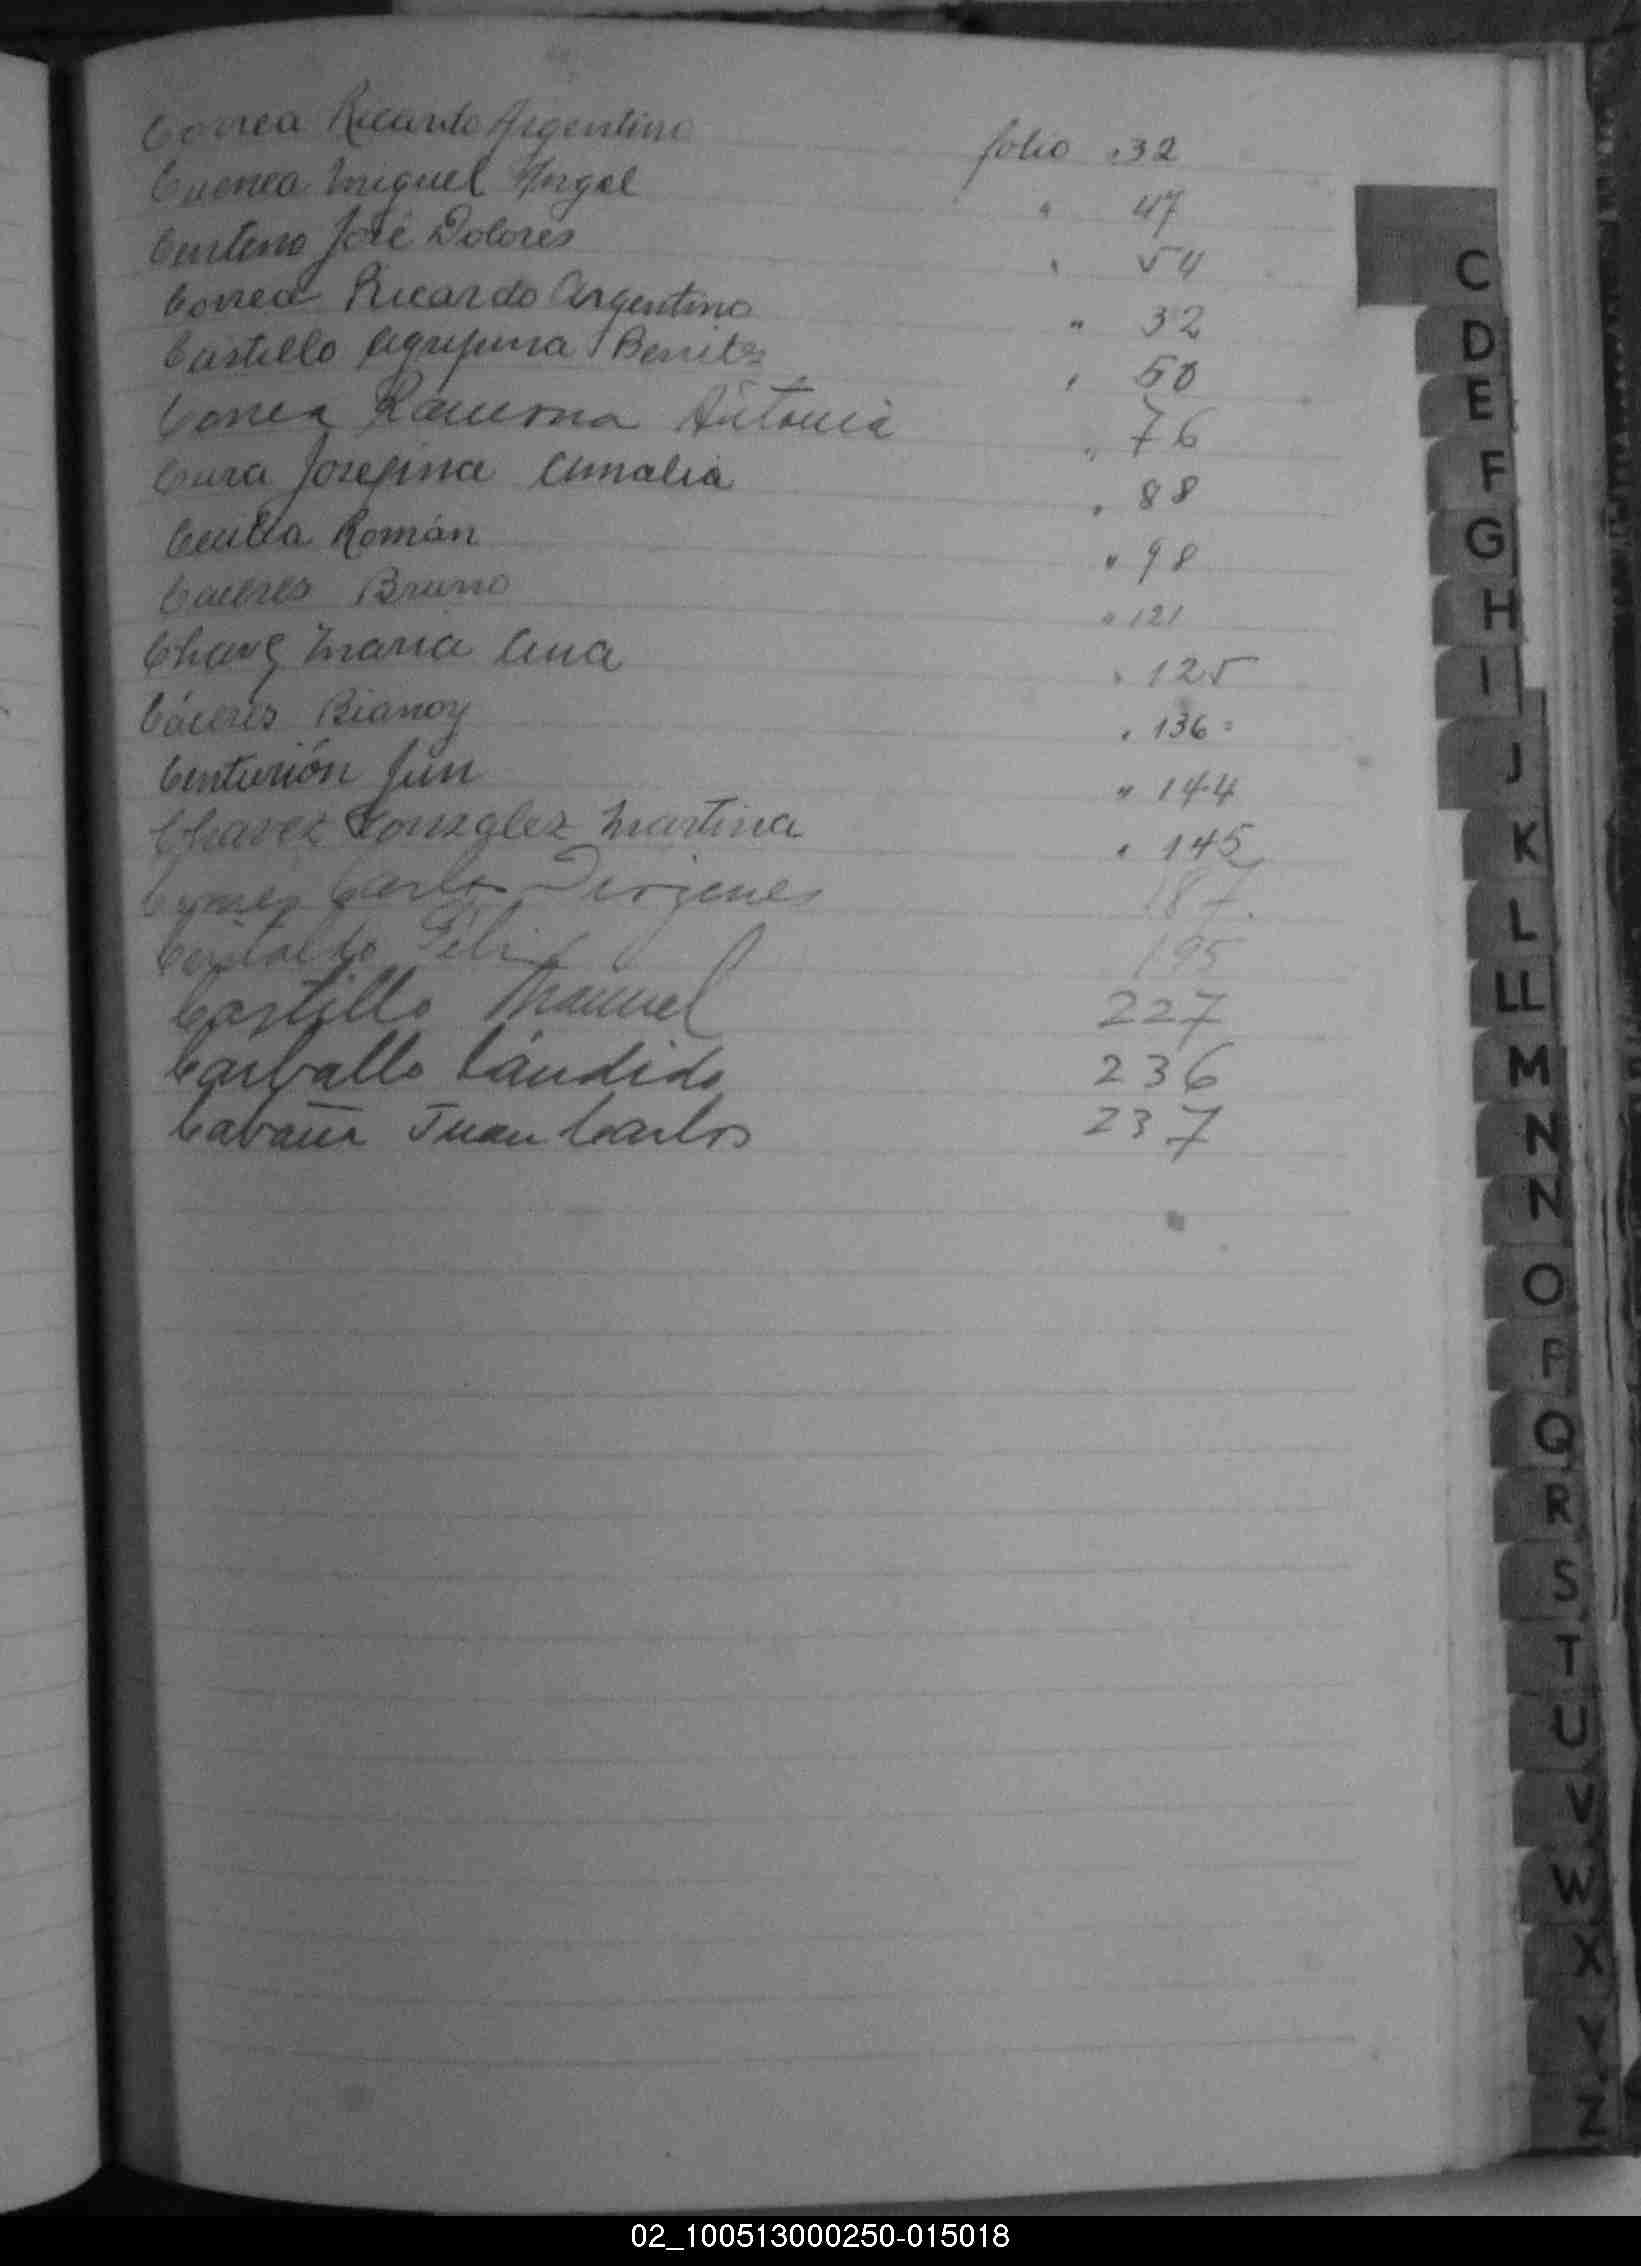 Correa Ricardo Argentino folio " 32
Cuenca Miguel Angel " 47
Centeno José Dolores " 54
Correa Ricardo Argentino " 32
Castillo Agripina Benitz " 50
Correa Ramona Antonia " 76
Cura Josefina Amalia " 88
Román " 98
Caceres Bruno " 121
Chavez Maria Ana " 125
Cáceres Bianoy " 136
Centurión Jun " 144
Chavez Gonzalez Martina " 145
Carlos Diogenes 187
Félix 195
Castillo Manuel 227
Carballo Cándido 236
Cabaña Juan Carlos 237
C
D
E
F
G
H
I
J
K
L
LL
M
N
N
O
P
Q
R
S
T
U
V
W
X
Y
Z
02_100513000250-015018